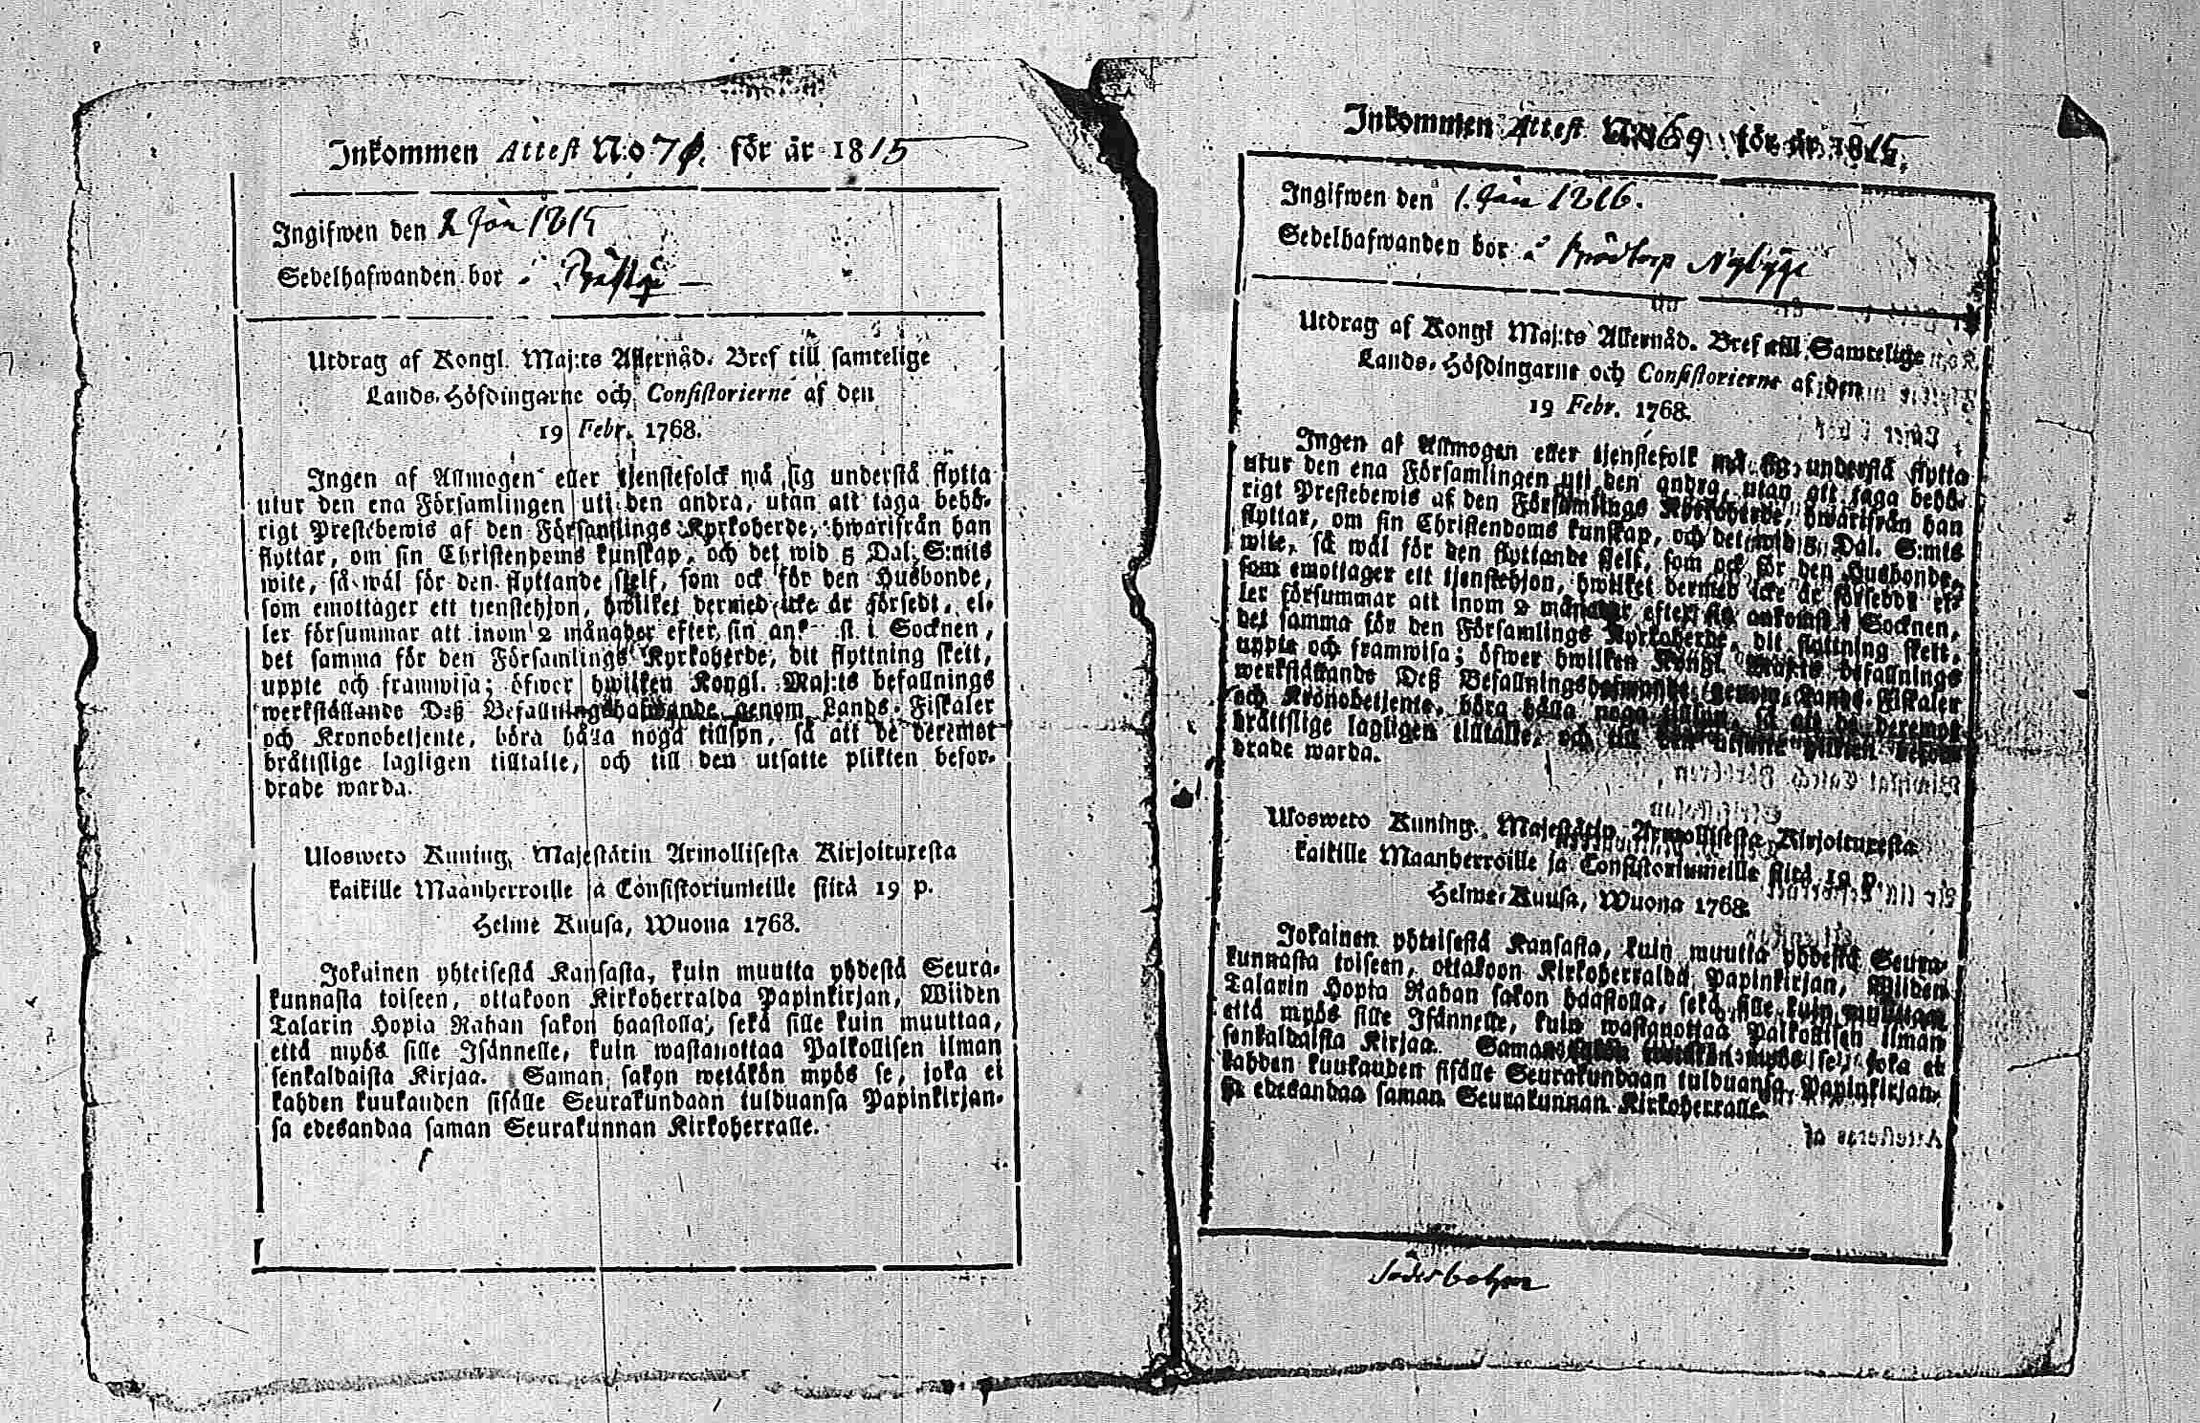 Inkommen Attest N:o 70. för år 1815
Ingifwen den 2 Jan 1815
Sedelhafwanden bor i
Utdrag af Kongl. Maj:ts Allernåd. Bref till samtelige
Lands-Höfdingarne och Consistorierne af den
19 Febr. 1768.
Ingen af Allmogen eller tjenstefolck må sig understå flytta
utur den ena Församlingen uti den andra, utan att taga behö-
rigt Prestebewis af den Församlings Kyrkoherde, hwarifrån han
flyttar, om sin Christendoms kunskap, och det wid 5 Dal. S:mts
wite, så wäl för den flyttande sjelf, som ock för den Husbonde,
som emottager ett tjenstehjon, hwilket dermed icke är försedt, el-
ler försummar att inom 2 månader efter sin st i Socknen,
det samma för den Församlings Kyrkoherde, dit flyttning skett,
uppte och framwisa; öfwer hwilken Kongl. Maj:ts befallnings
werkställande Deß Befallningshafwande genom Lands-Fiskaler
och Kronobetjente, böra hålla noga tillsyn, så att de deremot
bråttslige lagligen tilltalte, och till den utsatte plikten befor-
drade warda.
Ulosweto Kuning. Majestätin Armollisesta Kirjoituxesta
kaikille Maanherroille ja Consistoriumeille siitä 19 p.
Helme Kuusa, Wuona 1768.
Jokainen yhteisestä Kansasta, kuin muutta yhdestä Seura-
kunnasta toiseen, ottakoon Kirkoherralda Papinkirjan, Wiiden
Talarin Hopia Rahan sakon haastolla, sekä sille kuin muuttaa,
että myös sille Isännelle, kuin wastanottaa Palkollisen ilman
senkaldaista Kirjaa. Saman sakon wetäkön myös se, joka ei
kahden kuukauden sisälle Seurakundaan tulduansa Papinkirjan-
sa edesandaa saman Seurakunnan Kirkoherralle.
Inkommen Attest N:o 69 för år 1815.
Ingifwen den 1. Jan 1816.
Sedelhafwanden bor å Brödtorp Nybygge
Utdrag af Kongl Maj:ts Allernåd. Bref till Samtelige
Lands-Höfdingarne och Consistorierne af den
19 Febr. 1768.
Ingen af Allmogen eller tjenstefolk må sig understå flytta
utur den ena Församlingen uti den andra, utan att taga behö-
rigt Prestebewis af den Församlings Kyrkoherde, hwarifrån han
flyttar, om sin Christendoms kunskap, och det wid 5 Dal. S:mts
wite, så wäl för den flyttande sjelf, som ock för den Husbonde,
som emottager ett tjenstehjon, hwilket dermed icke är försedt el-
ler försummar att inom 2 månader efter sin ankomst i Socknen,
det samma för den Församlings Kyrkoherde, dit flyttning skett,
uppte och framwisa; öfwer hwilken Kongl. Maj:ts befallnings
werkställande Deß Befallningshafwande genom Lands-Fiskaler
och Kronobetjente, böra hålla noga tillsyn, så att de deremot
bråttslige lagligen tilltalte, och till den utsatte plikten befor-
drade warda.
Ulosweto Kuning. Majestätin Armollisesta Kirjoituxesta
kaikille Maanherroille ja Consistoriumeille siitä 19 p.
Helme-Kuusa, Wuona 1768.
Jokainen yhteisestä Kansasta, kuin muutta yhdestä Seura-
kunnasta toiseen, ottakoon Kirkoherralda Papinkirjan, Wiiden
Talarin Hopia Rahan sakon haastolla, sekä sille kuin muuttaa
että myös sille Isännelle, kuin wastanottaa Palkollisen ilman
senkaldaista Kirjaa. Saman sakon wetäkön myös se, joka ei
kahden kuukauden sisälle Seurakundaan tulduansa Papinkirjan-
sa edesandaa saman Seurakunnan Kirkoherralle.